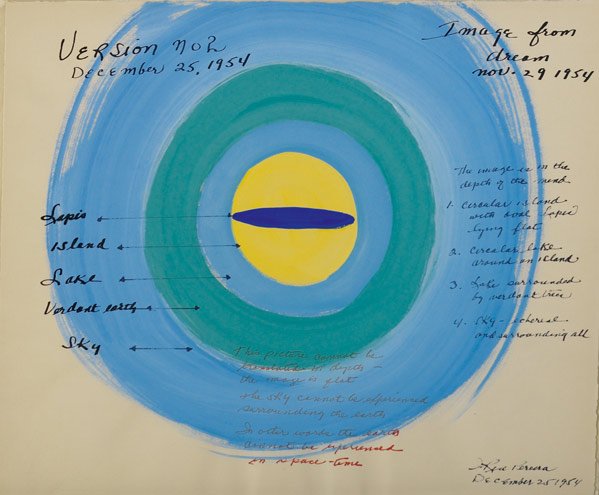 VERSION NO 2
December 25, 1954
Image from
dream
nov. 29 1954
The image is in the
depth of the mind
1. Circular island
with oval lapis
lying flat
2. Circular lake
around an island
3. Lake surrounded
by verdant trees
4. Sky - ethereal
and surrounding all
Lapis
Island
Lake
Verdant earth
Sky
This picture cannot be
translated in depth -
the image is flat
the sky cannot be experienced
surrounding the earth
In other words the earth
cannot be experienced
in space-time
Pereira
December 25 1954